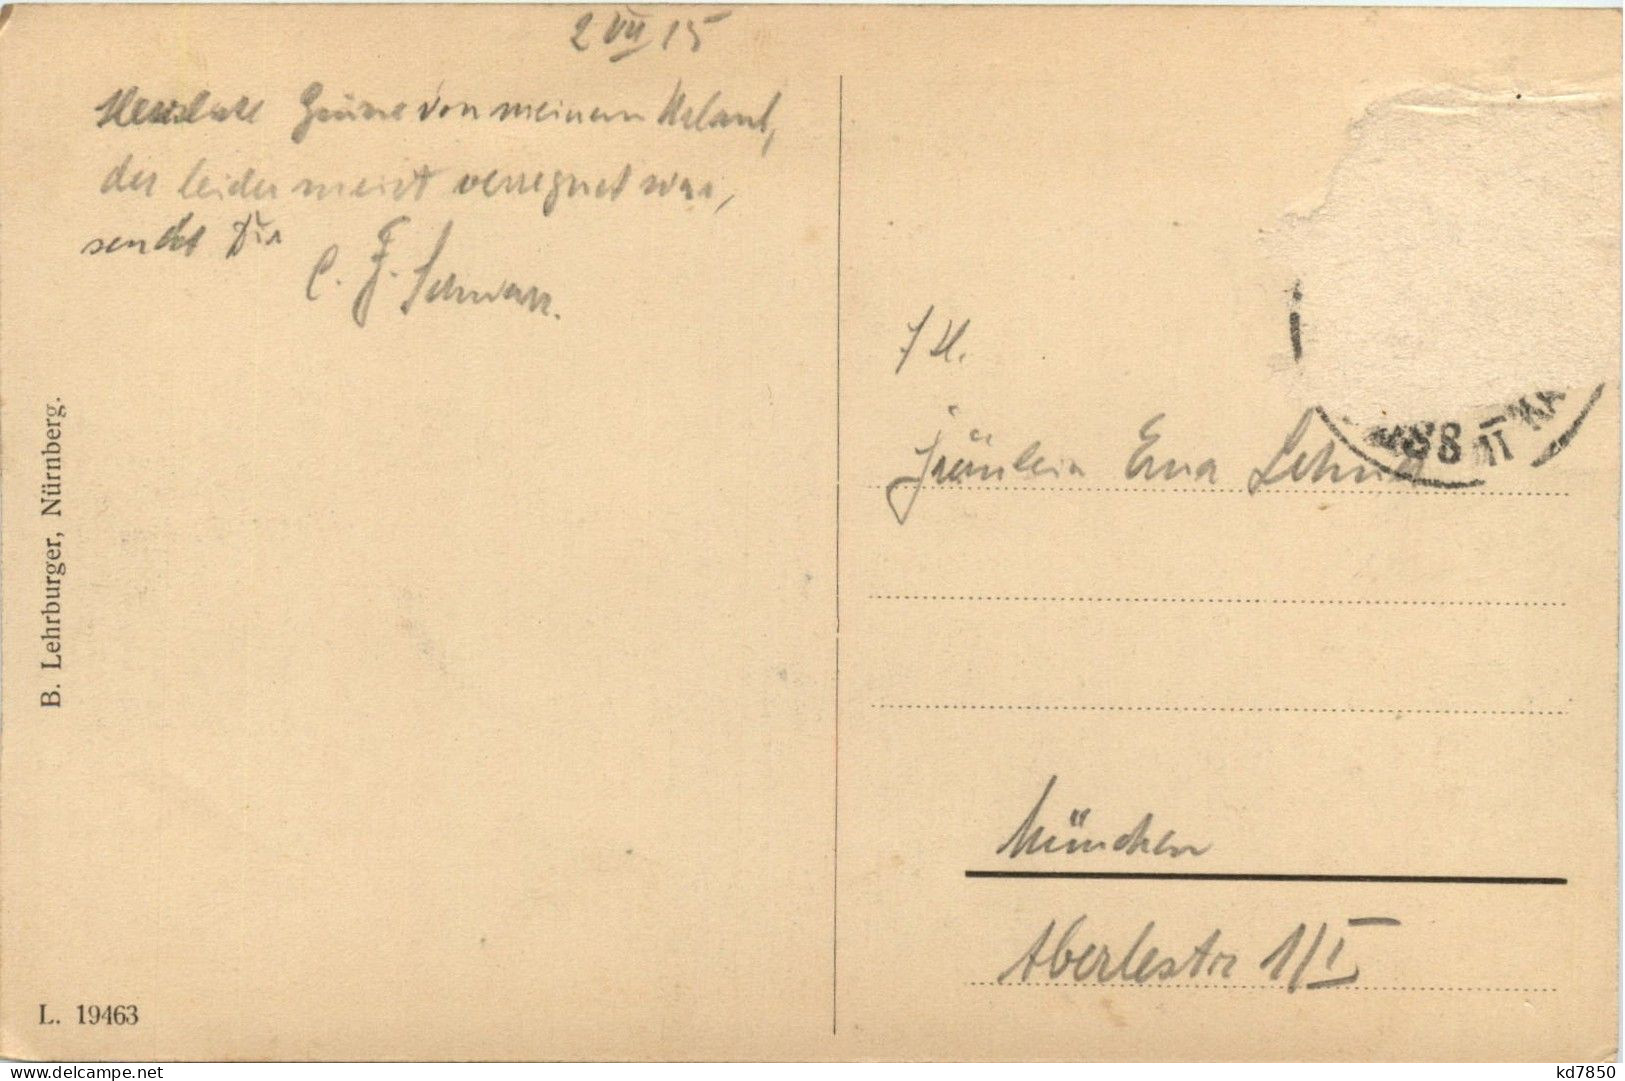 2 VII 15
Herzliche Grüsse von meinem Urlaub,
der leider meist verregnet war,
sendet Dir
C. F. Schwarz.
B. Lehrburger, Nürnberg.
L. 19463
Fräulein Erna
München
Aberlestr 1/I
delcampe.net
kd7850